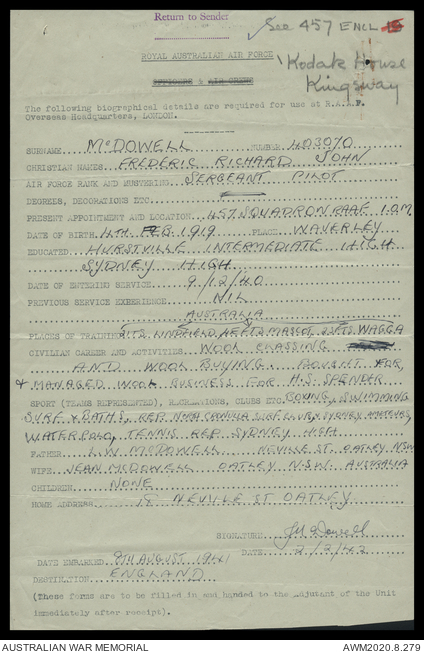 Return to Sender
See 457 ENCL
ROYAL AUSTRALIAN AIR FORCE
'Kodak House
Kingsway
OFFICERS & AIR CREW
The following biographical details are required for use at R.A.A.F.
Overseas Headquarters, LONDON.
SURNAME McDOWELL NUMBER 403070
CHRISTIAN NAMES FREDERIC RICHARD JOHN
AIR FORCE RANK AND MUSTERING SERGEANT PILOT
DEGREES, DECORATIONS ETC
PRESENT APPOINTMENT AND LOCATION 457 SQUADRON RAAF I.O.M.
DATE OF BIRTH 4TH FEB 1919 PLACE WAVERLEY
EDUCATED HURSTVILLE INTERMEDIATE HIGH
SYDNEY HIGH
DATE OF ENTERING SERVICE 9/12/40
PREVIOUS SERVICE EXPERIENCE NIL
AUSTRALIA
PLACES OF TRAINING 2 ITS. LINDFIELD, MASCOT, 2SFTS. WAGGA
CIVILIAN CAREER AND ACTIVITIES WOOL CLASSING
AND WOOL BUYING. BOUGHT FOR,
& MANAGED WOOL BUSINESS FOR H.S. SPENDER
SPORT (TEAMS REPRESENTED), RECREATIONS, CLUBS ETC. SWIMMING
SURF & BATHS, REP NTH CRONULLA SURF CLUB, & SYDNEY AMATEURS,
WATERPOLO, TENNIS REP SYDNEY HIGH
FATHER L.W. McDOWELL NEVILLE ST. OATLEY NSW
WIFE JEAN McDOWELL OATLEY N.S.W. AUSTRALIA
CHILDREN NONE
HOME ADDRESS 18 NEVILLE ST OATLEY
SIGNATURE
DATE 2/2/42
DATE EMBARKED 8TH AUGUST 1941
DESTINATION ENGLAND
(These forms are to be filled in and handed to the Adjutant of the Unit
immediately after receipt).
AUSTRALIAN WAR MEMORIAL
AWM2020.8.279